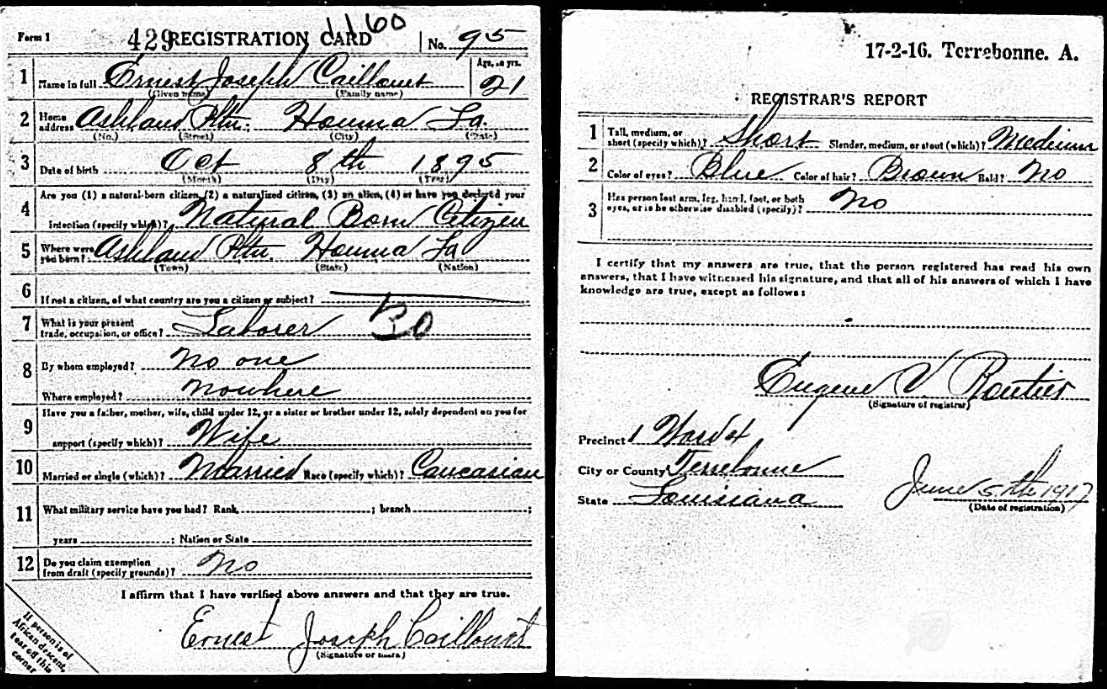 1160
Form 1 429 REGISTRATION CARD No. 95
1 Name in full Ernest Joseph Caillouet Age, in yrs. 21
(Given name) (Family name)
2 Home address Ashland Pltn. Houma La.
(No.) (Street) (City) (State)
3 Date of birth Oct 8th 1895
(Month) (Day) (Year)
4 Are you (1) a natural-born citizen, (2) a naturalized citizen, (3) an alien, (4) or have you declared your
intention (specify which)? Natural Born Citizen
5 Where were you born? Ashland Pltn. Houma La
(Town) (State) (Nation)
6 If not a citizen, of what country are you a citizen or subject?
7 What is your present trade, occupation, or office? Laborer 30
8 By whom employed? No one
Where employed? Nowhere
9 Have you a father, mother, wife, child under 12, or a sister or brother under 12, solely dependent on you for
support (specify which)? Wife
10 Married or single (which)? Married Race (specify which)? Caucasian
11 What military service have you had? Rank ; branch ;
years ; Nation or State
12 Do you claim exemption from draft (specify grounds)? No
I affirm that I have verified above answers and that they are true.
Ernest Joseph Caillouet
(Signature or mark)
If person is of
African descent,
tear off this
corner
17-2-16. Terrebonne. A.
REGISTRAR'S REPORT
1 Tall, medium, or short (specify which)? Short Slender, medium, or stout (which)? Medium
2 Color of eyes? Blue Color of hair? Brown Bald? No
3 Has person lost arm, leg, hand, foot, or both
eyes, or is he otherwise disabled (specify)? No
I certify that my answers are true, that the person registered has read his own
answers, that I have witnessed his signature, and that all of his answers of which I have
knowledge are true, except as follows:
Eugene V
(Signature of registrar)
Precinct 1 Ward 4
City or County Terrebonne
State Louisiana June 5th 1917
(Date of registration)